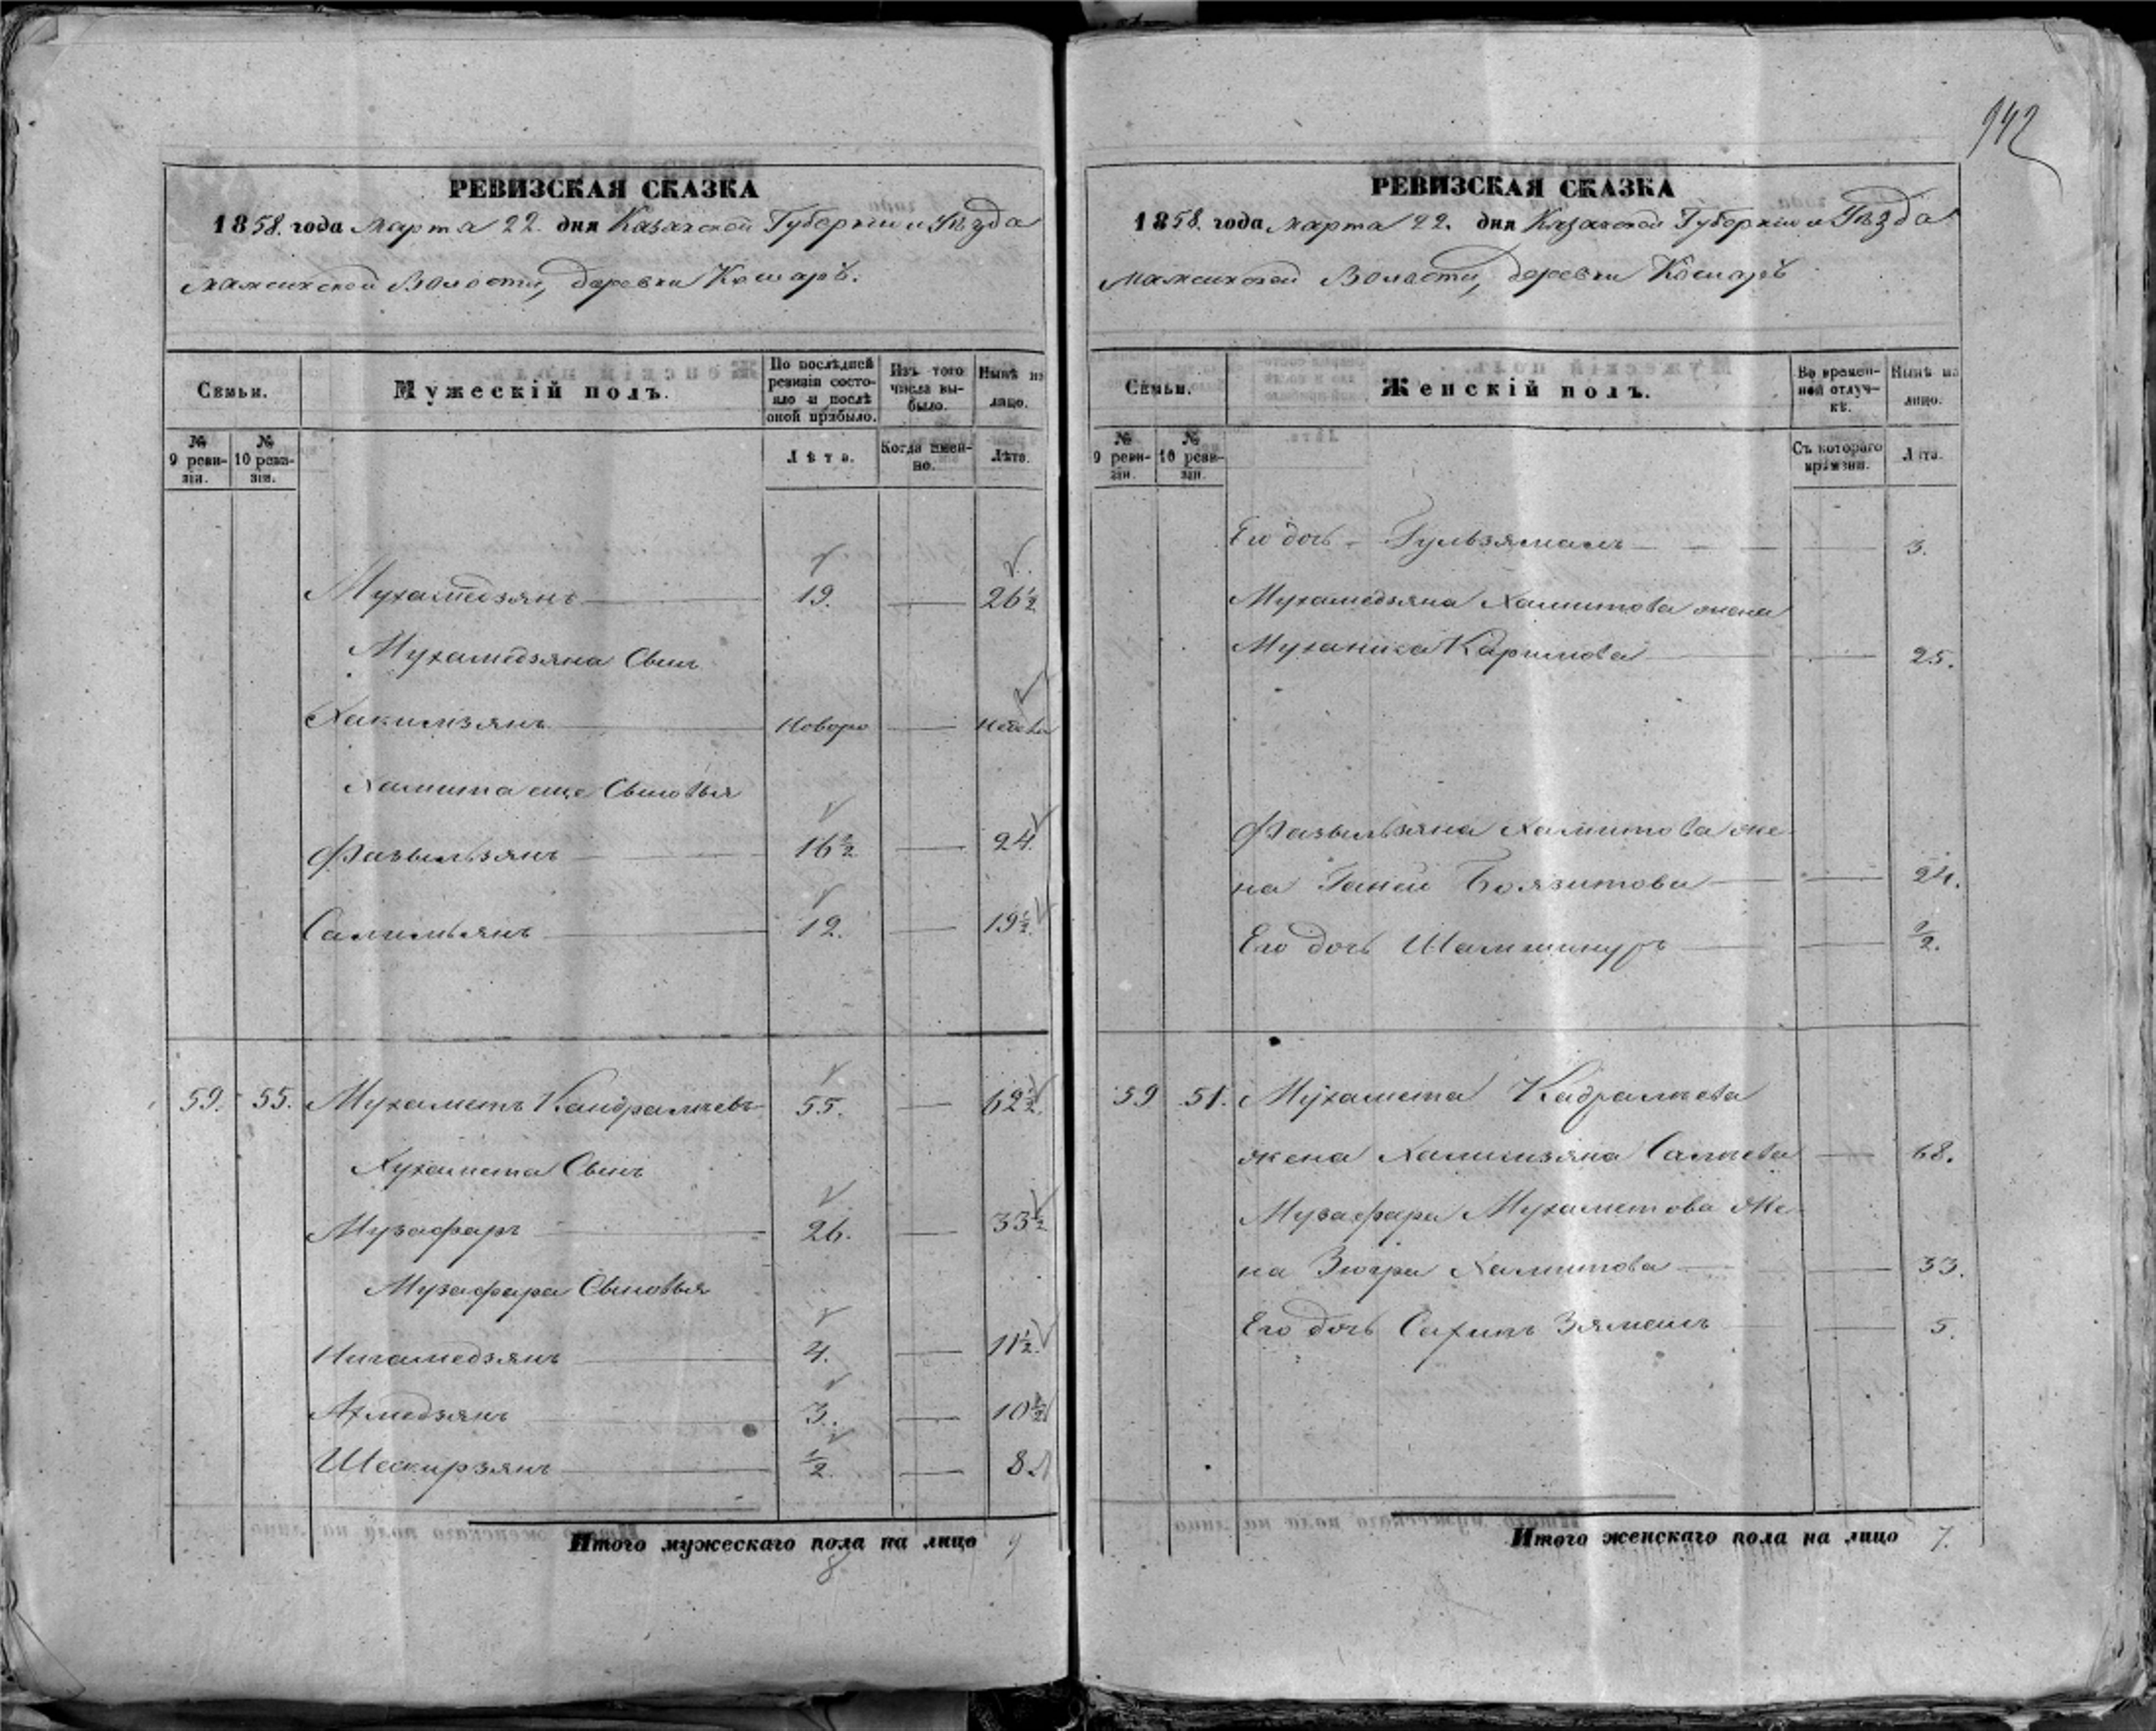 РЕВИЗСКАЯ СКАЗКА
1858. года Марта 22. дня Казанской Губерніи и Уѣзда
Мамсинской Волости, деревни Кошаръ.
Семьи.
Мужескій полъ.
По послѣдней ревизіи состояло и послѣ оной прибыло.
Изъ того числа выбыло.
Нынѣ на лицо.
№ 9 ревизіи.
№ 10 ревизіи.
Лѣта.
Когда именно.
Лѣта.
Мухамедзянъ 19. 26½
Мухамедзяна Сынъ
Хакимзянъ Новоро
Хамита еще Сыновья
Фазыльзянъ 16½ 24.
Салимьянъ 12. 19½.
59. 55. Мухаметъ Кандралиевъ 55. 62½.
Мухамета Сынъ
Музафаръ 26. 33½
Музафара Сыновья
Нигамедзянъ 4. 11½.
Ахмедзянъ 3. 10½
Шекирзянъ ½. 8.
Итого мужескаго пола на лицо 9
8
942
РЕВИЗСКАЯ СКАЗКА
1858. года Марта 22. дня Казанской Губерніи и Уѣзда
Мамсинской Волости, деревни Кошаръ
Семьи.
Женскій полъ.
Во временной отлучкѣ.
Нынѣ на лицо.
№ 9 ревизіи.
№ 10 ревизіи.
Съ котораго времяни.
Лѣта.
Его дочь Гульзямалъ 3.
Мухамедзяна Хамитова жена
Каримова 25.
Фазыльзяна Хамитова же-
на Боязитова 24.
Его дочь Шамшинуръ ½.
59 51. Мухамета Кадралиева
жена Халимзяна Салиева 68.
Музафара Мухаметова же-
на Зюгра Хамитова 33.
Его дочь Сахипъ Зямалъ 5.
Итого женскаго пола на лицо 7.